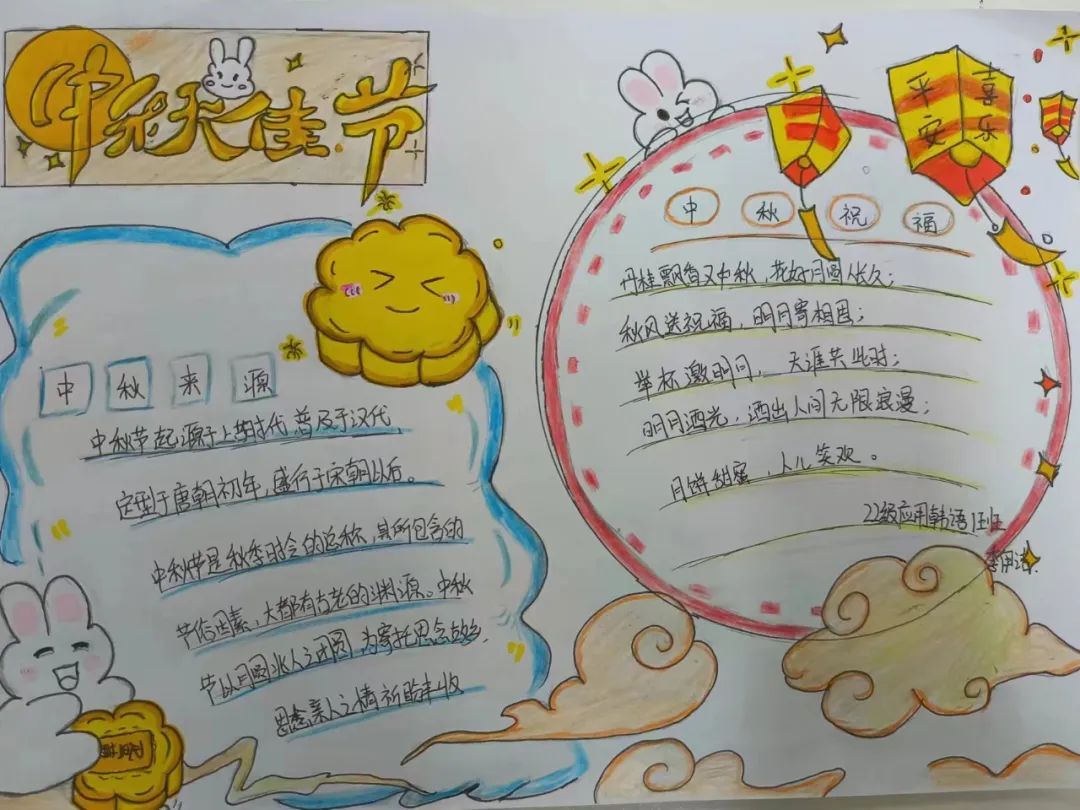 中秋佳节
中秋来源
中秋节起源于上古时代,普及于汉代,
定型于唐朝初年,盛行于宋朝以后。
中秋节是秋季时令的总称,其所包含的
节俗因素,大都有古老的渊源。中秋
节以月圆兆人之团圆,为寄托思念故乡,
思念亲人之情祈盼丰收
平安
喜乐
中秋祝福
丹桂飘香又中秋,花好月圆人长久;
秋风送祝福,明月寄相思;
举杯邀明月,天涯共此时;
明月洒光,洒出人间无限浪漫;
月饼甜蜜,人儿笑欢。
22级应用韩语1班